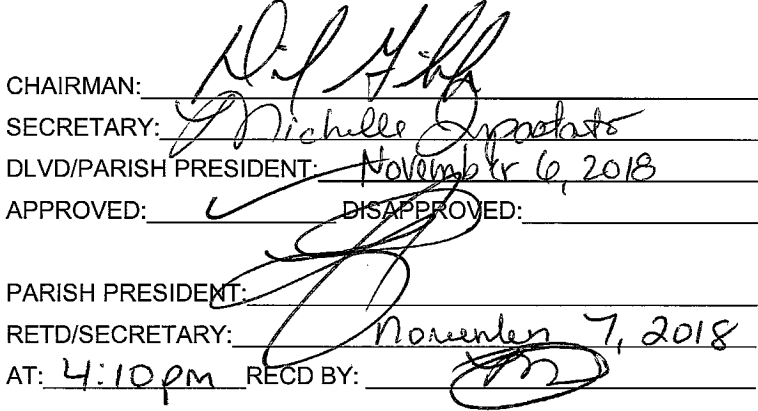 CHAIRMAN:
SECRETARY: Michelle Impastato
DLVD/PARISH PRESIDENT: November 6, 2018
APPROVED: ✓ DISAPPROVED:
PARISH PRESIDENT:
RETD/SECRETARY: November 7, 2018
AT: 4:10 pm RECD BY: